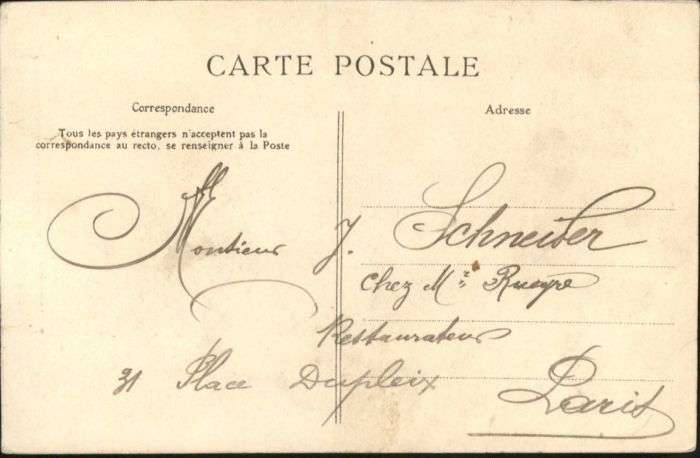 CARTE POSTALE
Correspondance
Adresse
Tous les pays étrangers n'acceptent pas la
correspondance au recto, se renseigner à la Poste
Monsieur J. Schneiber
chez Mr Rueyre
Restaurateur
31 Place Dupleix
Paris